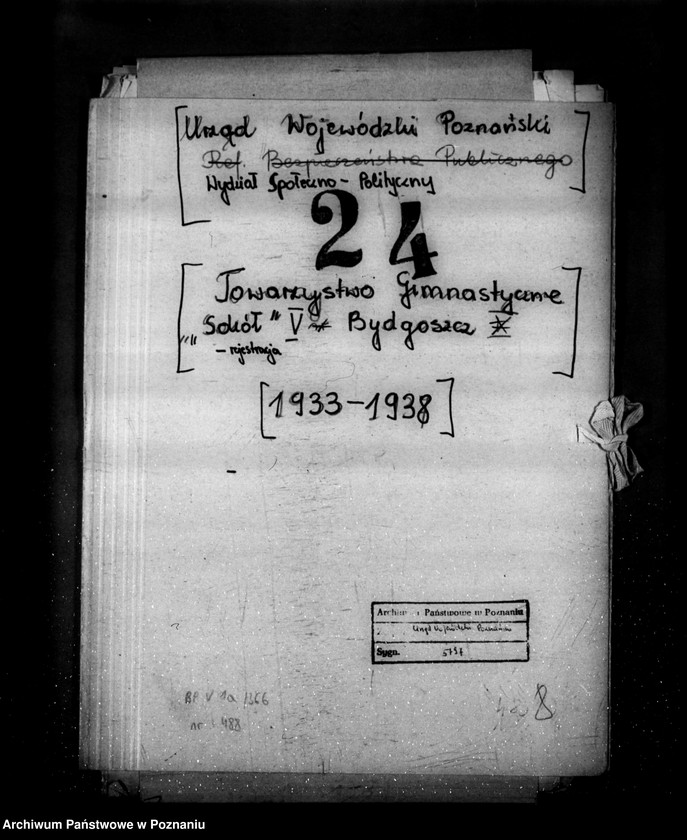 [Urząd Wojewódzki Poznański
Ref. Bezpieczeństwa Publicznego
Wydział Społeczno-Polityczny
24
[Towarzystwo Gimnastyczne]
"Sokół" V Bydgoszcz
- rejestracja
[1933-1938]
Archiwum Państwowe w Poznaniu
Urząd Wojewódzki Poznański
Sygn. 5797
BP V 1a /366
nr 1 488
8
Archiwum Państwowe w Poznaniu